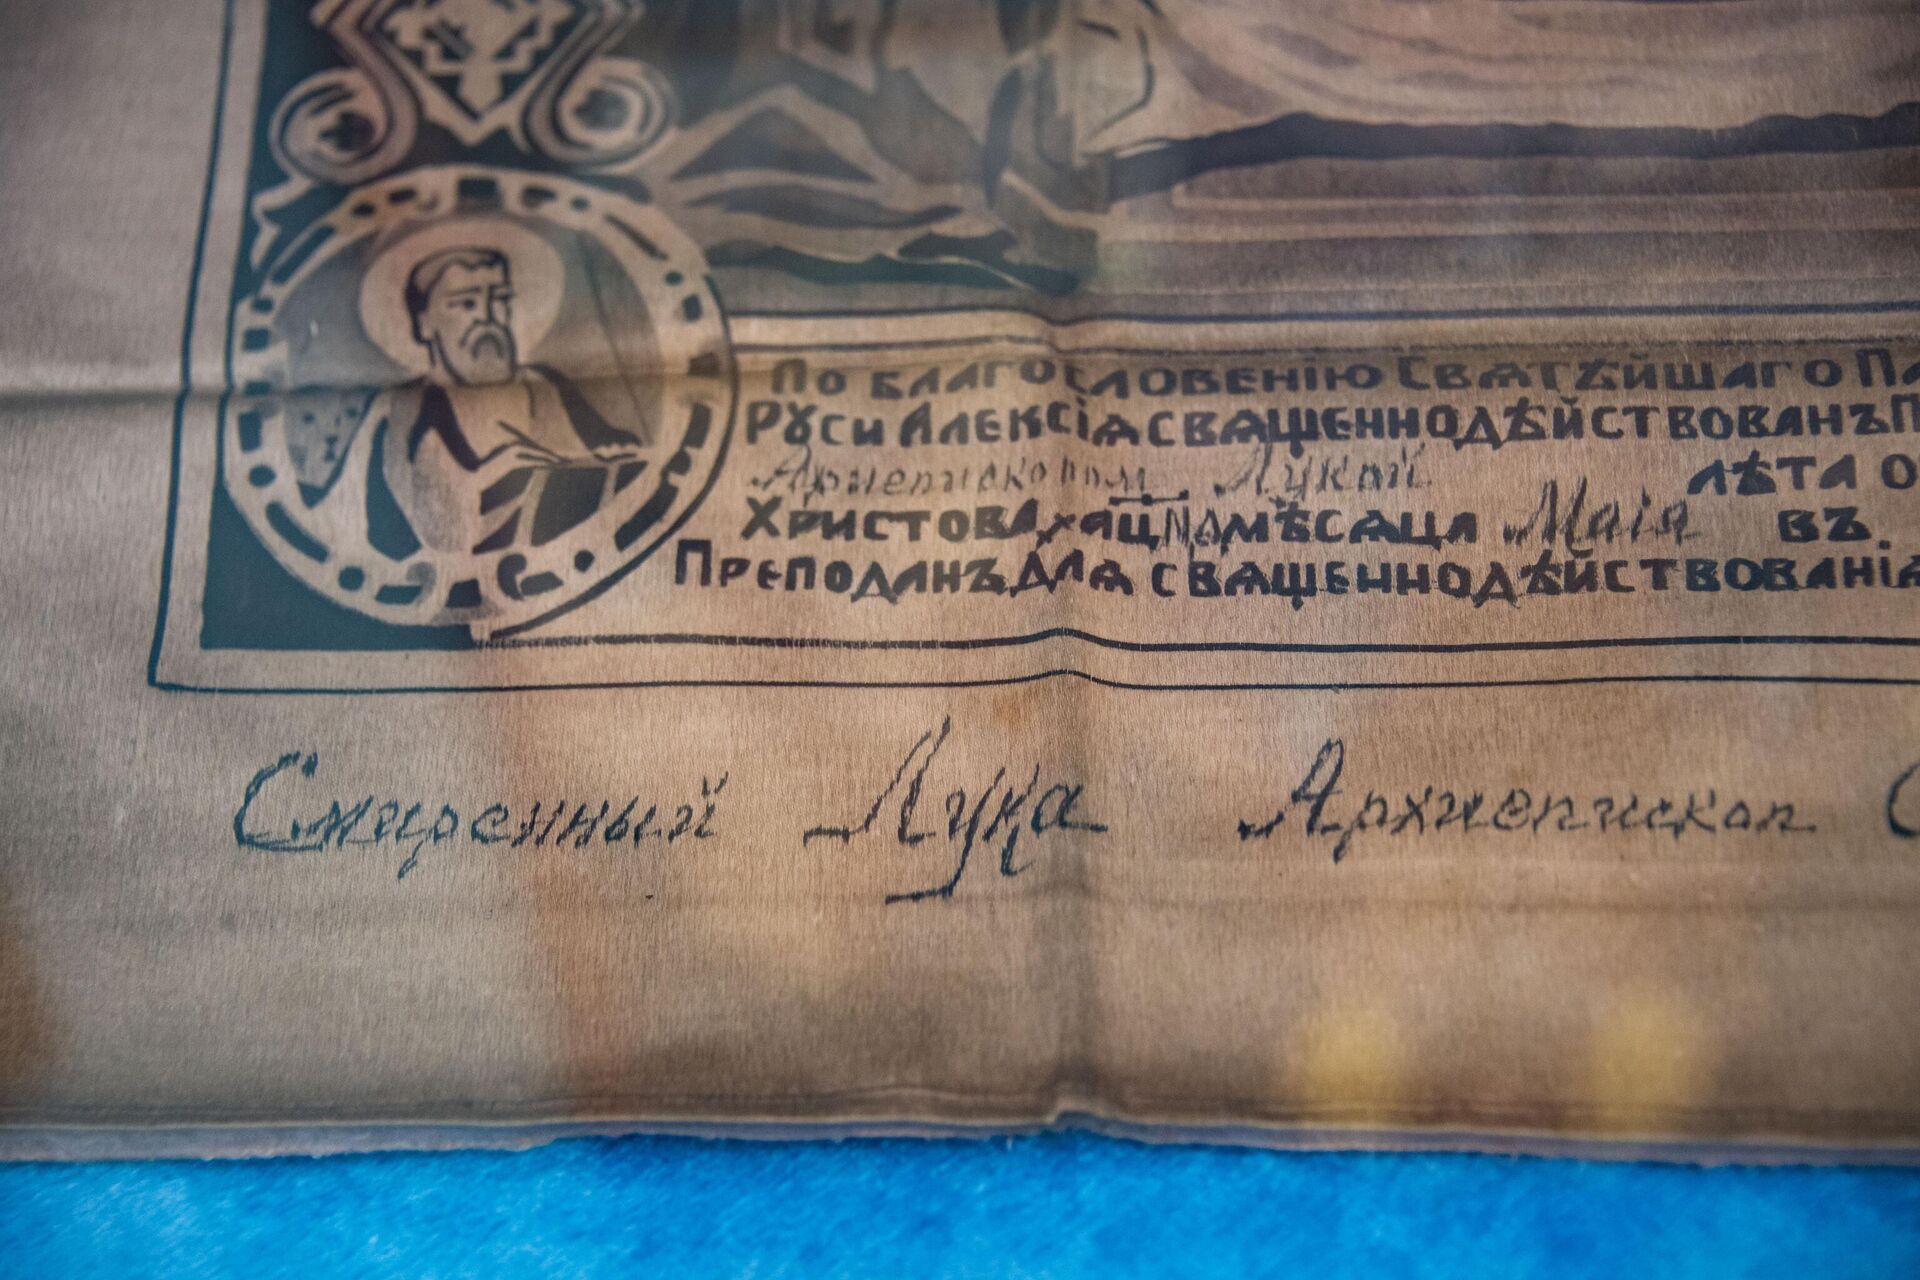 По благословенію Святѣйшаго Па
Руси Алексія священнодѣйствованъ П
Архиепископом Лукой лѣта о
Христова мѣсяца Маія въ
Преподанъ для священнодѣйствованія
Смиренный Лука Архиепископ С